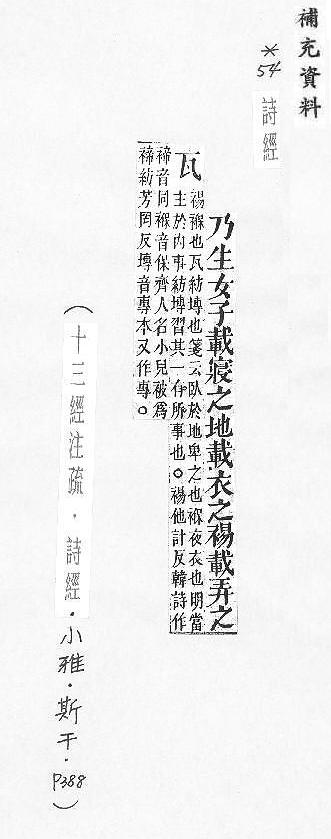 補充資料
*54
詩經
乃生女子載寢之地載衣之裼載弄之
瓦
裼褓也瓦紡塼也箋云臥於地卑之也褓夜衣也明當
主於內事紡塼習其一有所事也。裼他計反韓詩作
禘音同褓音保齊人名小兒被為
禘紡芳罔反塼音專本又作專。
(十三經注疏．詩經．小雅．斯干．P388)